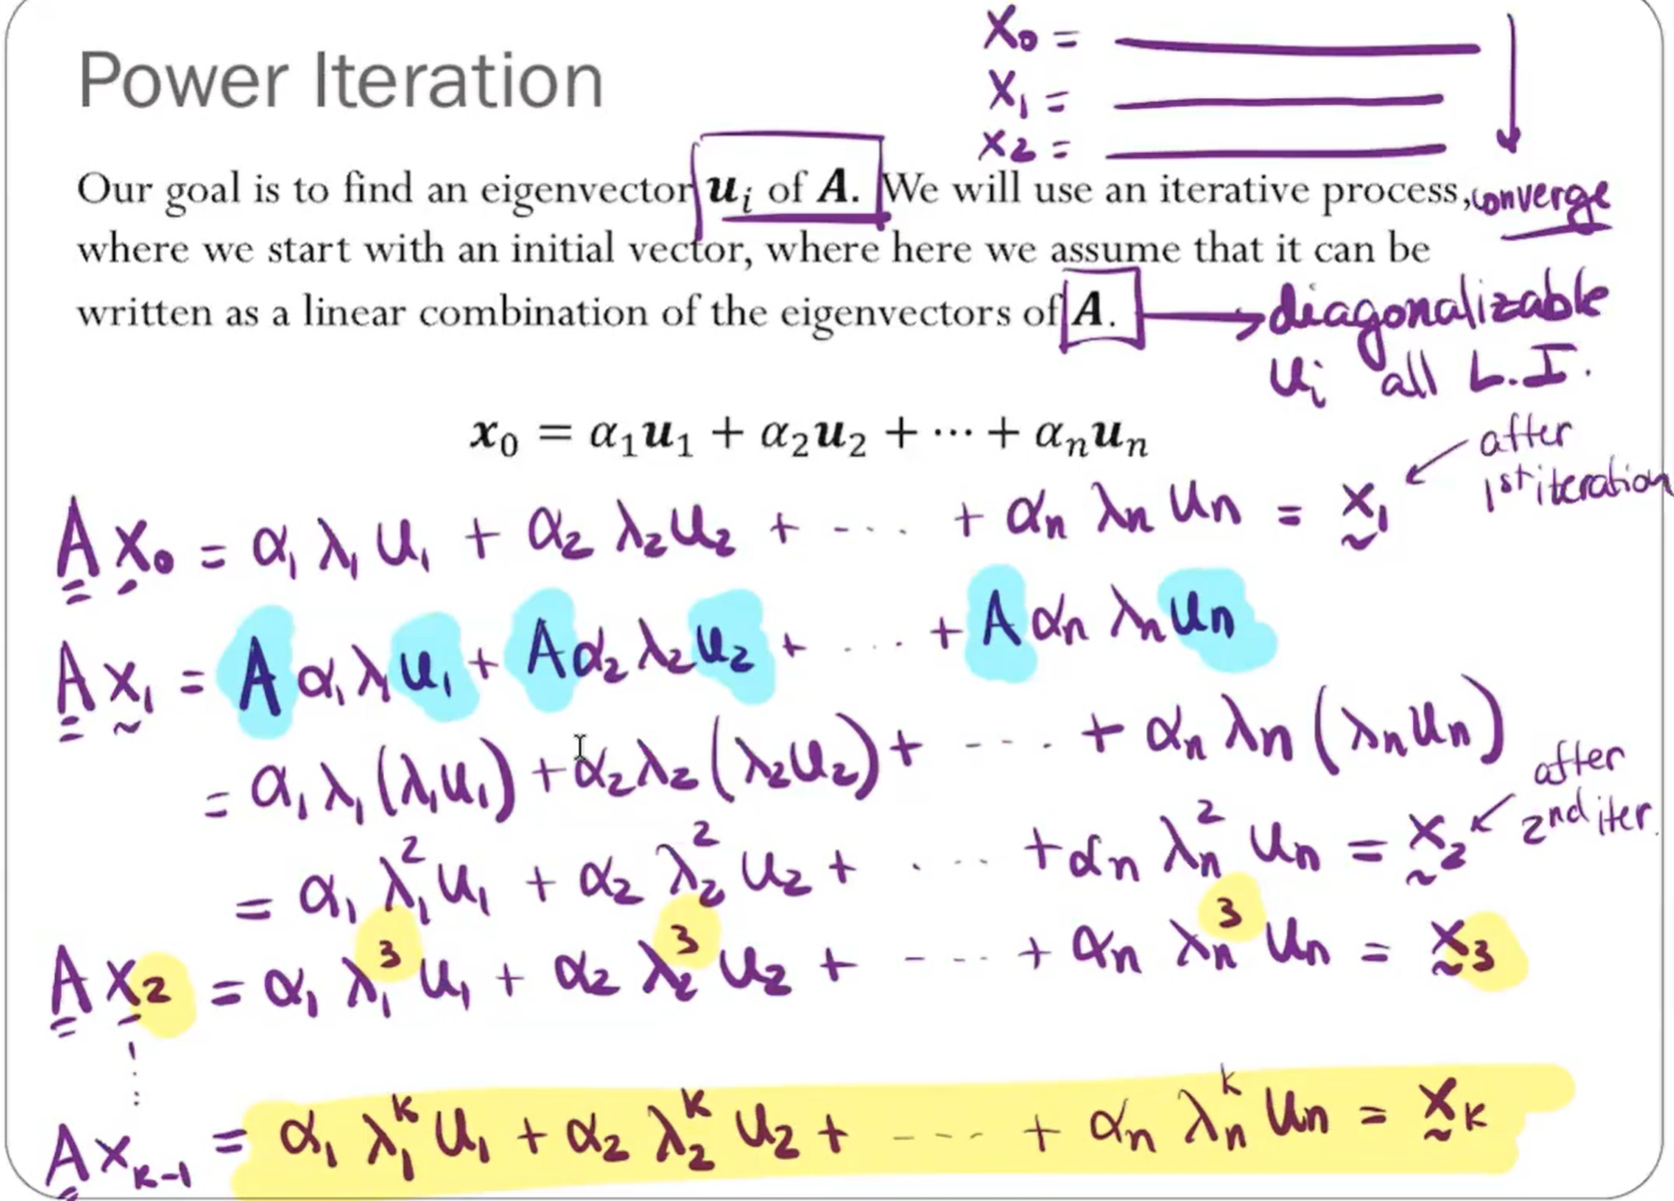 Power Iteration
x₀ =
x₁ =
x₂ =
Our goal is to find an eigenvector uᵢ of A. We will use an iterative process, converge
where we start with an initial vector, where here we assume that it can be
written as a linear combination of the eigenvectors of A. → diagonalizable
uᵢ all L.I.
x₀ = α₁u₁ + α₂u₂ + ⋯ + αₙuₙ
after
1st iteration
A x₀ = α₁ λ₁ u₁ + α₂ λ₂ u₂ + ---- + αₙ λₙ uₙ = x₁
A x₁ = A α₁ λ₁ u₁ + A α₂ λ₂ u₂ + .... + A αₙ λₙ uₙ
= α₁ λ₁ (λ₁ u₁) + α₂ λ₂ (λ₂ u₂) + ---- + αₙ λₙ (λₙ uₙ)
after
2nd iter.
= α₁ λ₁² u₁ + α₂ λ₂² u₂ + .... + αₙ λₙ² uₙ = x₂
A x₂ = α₁ λ₁³ u₁ + α₂ λ₂³ u₂ + ---- + αₙ λₙ³ uₙ = x₃
⋮
A xₖ₋₁ = α₁ λ₁ᵏ u₁ + α₂ λ₂ᵏ u₂ + ---- + αₙ λₙᵏ uₙ = xₖ